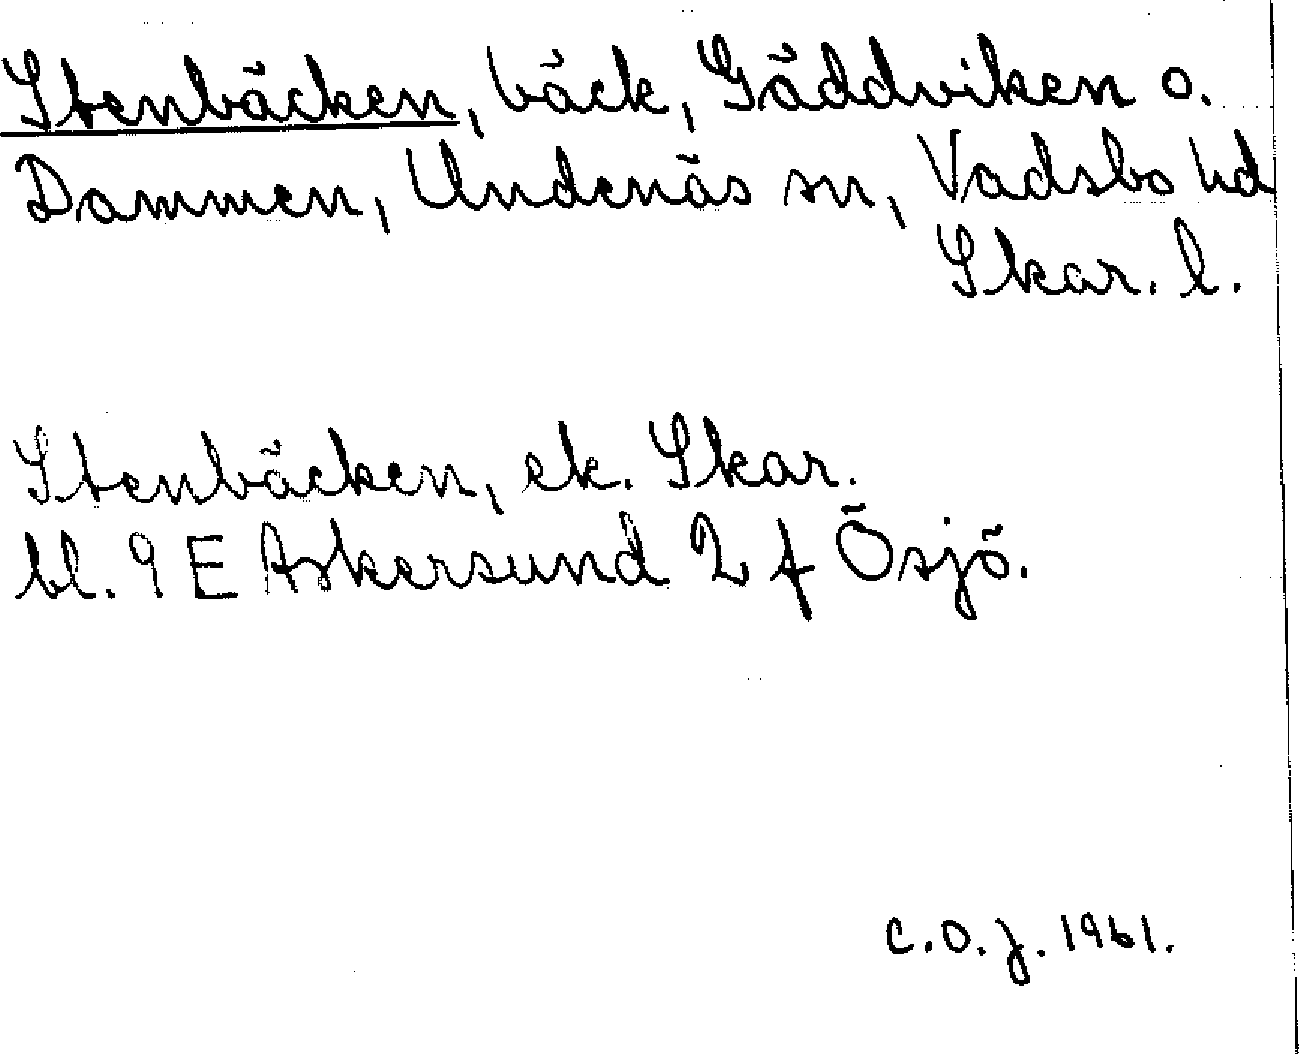 Stenbäcken, bäck, Gäddviken o.
Dammen, Undenäs sn, Vadsbo hd
Skar. l.
Stenbäcken, ek. Skar.
bl. 9 E Askersund 2 f Ösjö.
C.O.J. 1961.